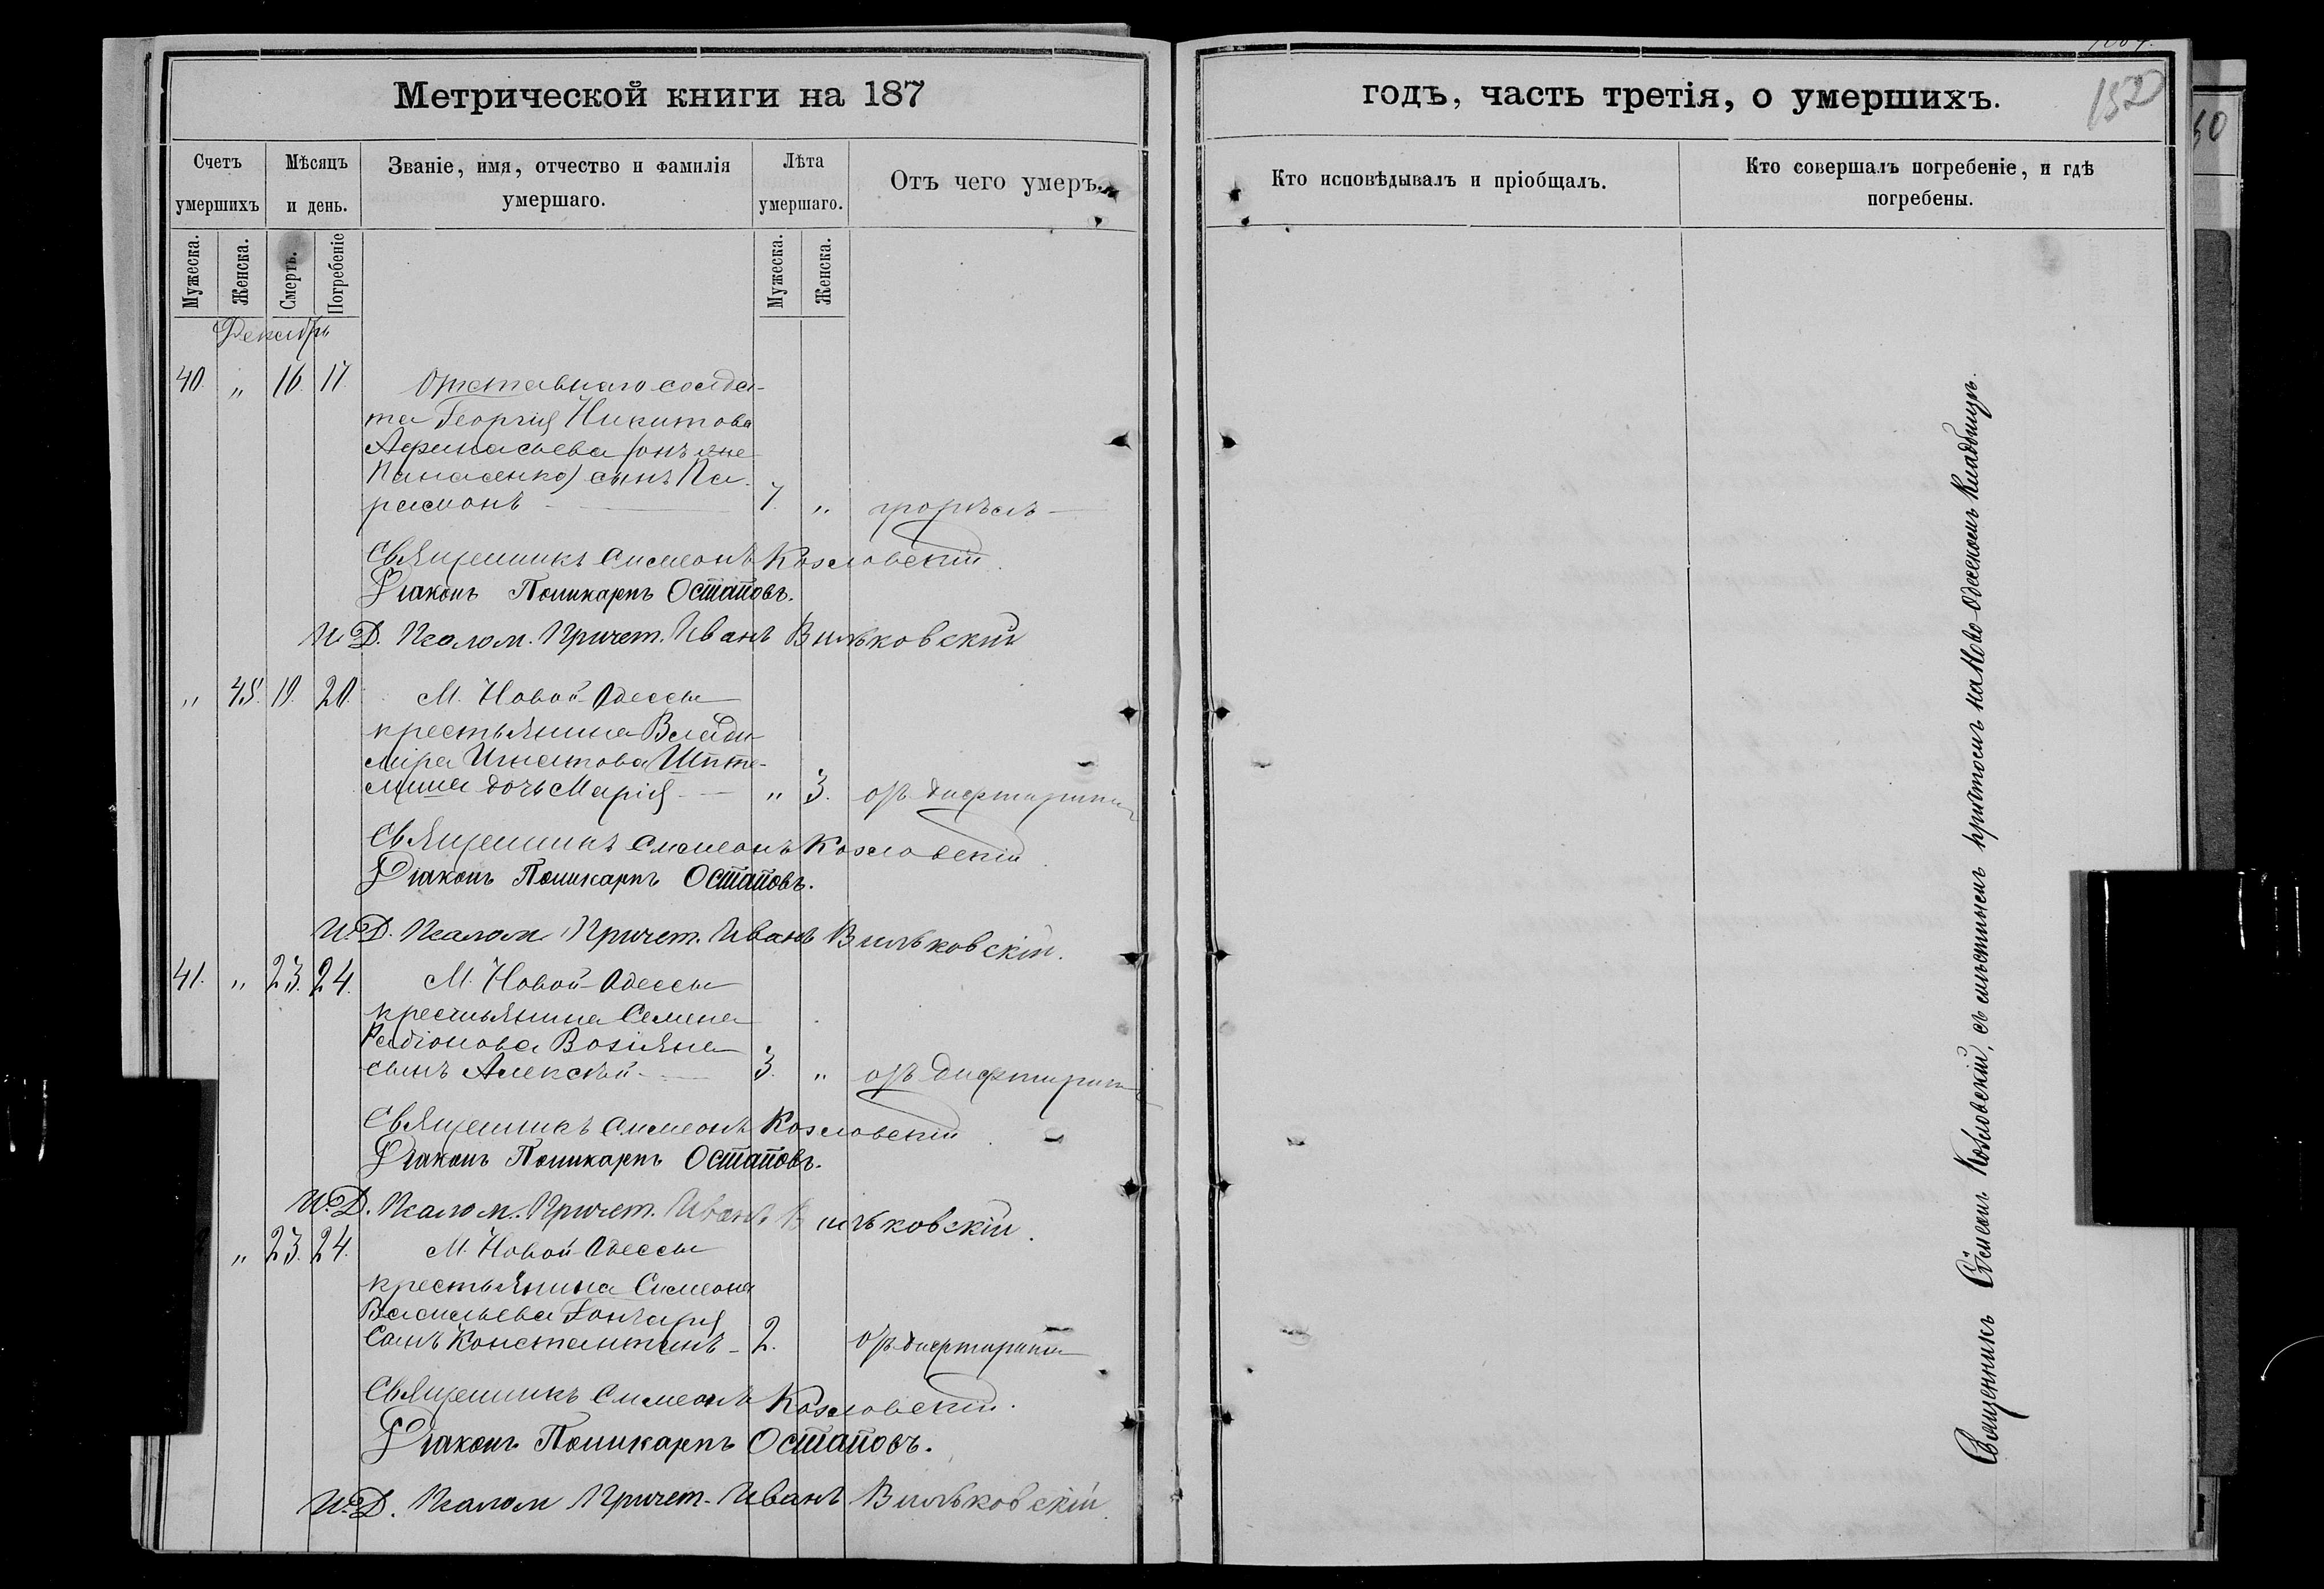 Метрической книги на 187
годъ, часть третія, о умершихъ.
152
Счетъ умершихъ
Мѣсяцъ и день.
Званіе, имя, отчество и фамилія умершаго.
Лѣта умершаго.
Отъ чего умеръ.
Кто исповѣдывалъ и пріобщалъ.
Кто совершалъ погребеніе, и гдѣ погребены.
Мужеска. Женска. Смерть. Погребеніе Мужеска. Женска.
Декабрь
40. „ 16. 17. Отставнаго солда-
та Георгія Никитова
Афанасьева (онъ же
Панасенко) сынъ Па-
рамонъ 7. „
Священникъ Симеонъ Козловскій.
Діаконъ Поликарпъ Остаповъ.
И. Д. Псалом. Причет. Иванъ Вильковскій
„ 45. 19. 20. М. Новой Одессы
крестьянина Влади-
міра Игнатова
дочь Марія „ 3. отъ дифтирита
Священникъ Симеонъ Козловскій
Діаконъ Поликарпъ Остаповъ.
И. Д. Псалом Причет. Иванъ Вильковскій.
41. „ 23. 24. М. Новой Одессы
крестьянина Семена
Радіонова Возіяна
сынъ Алексѣй 3. „ отъ дифтирита
Священникъ Симеонъ Козловскій
Діаконъ Поликарпъ Остаповъ.
И. Д. Псалом. Причет. Иванъ Вильковскій.
„ 23. 24. М. Новой Одессы
крестьянина Симеона
Васильева Гончаря
Сынъ Константинъ 2. отъ дифтирита
Священникъ Симеонъ Козловскій.
Діаконъ Поликарпъ Остаповъ.
И. Д. Псалом Причет. Иванъ Вильковскій.
Священникъ Симеонъ Козловскій, съ мѣстнымъ причтомъ на Ново-Одесскомъ Кладбищѣ.
50